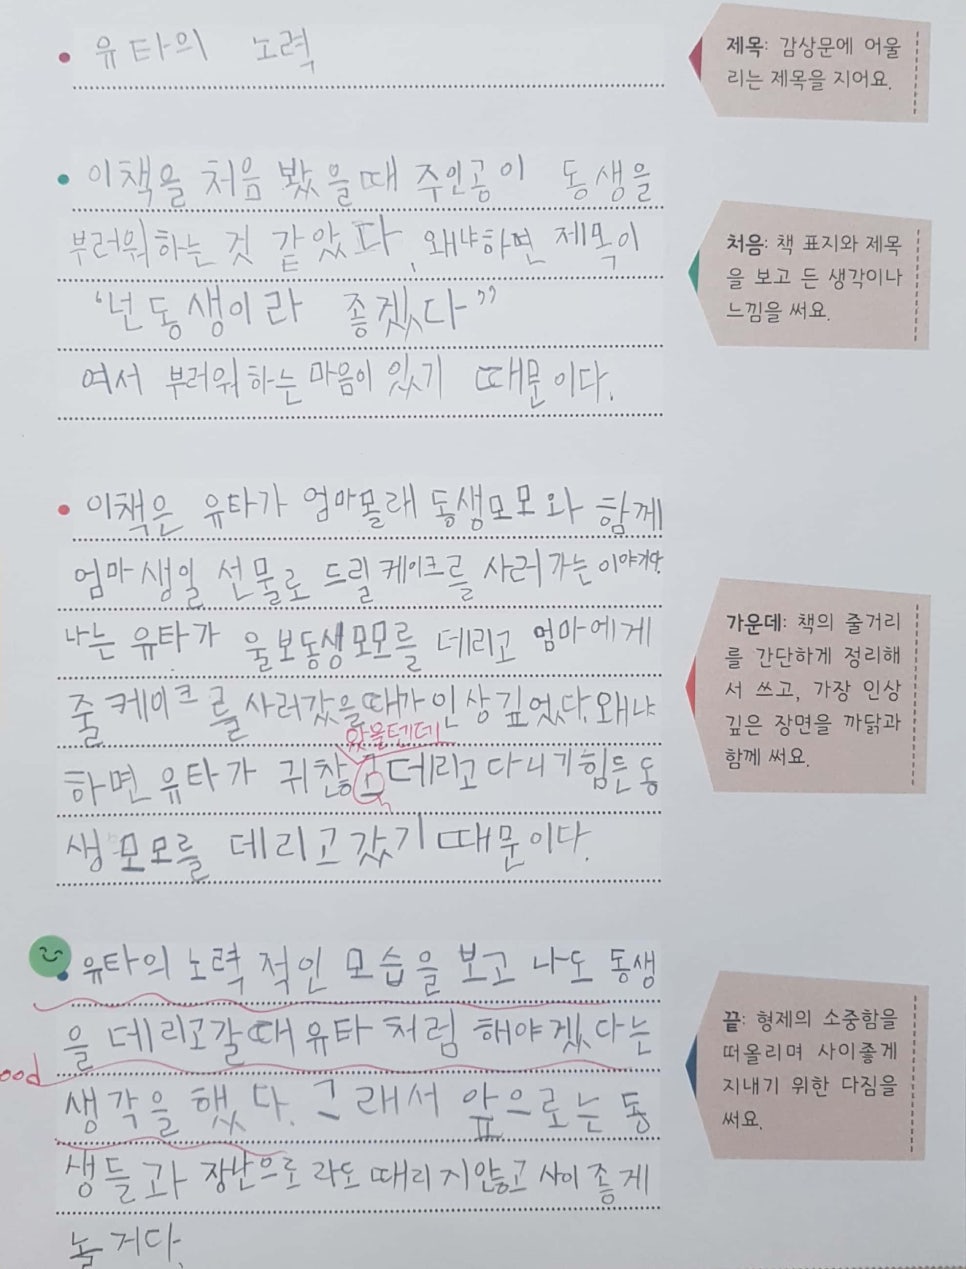 유타의 노력
제목: 감상문에 어울
리는 제목을 지어요.
이책을 처음 봤을때 주인공이 동생을
부러워하는 것 같았다, 왜냐하면 제목이
‘넌 동생이라 좋겠다”
여서 부러워하는 마음이 있기 때문이다.
처음: 책 표지와 제목
을 보고 든 생각이나
느낌을 써요.
이책은 유타가 엄마몰래 동생모모와 함께
엄마생일 선물로 드릴케이크를 사러가는이야기다.
나는 유타가 울보동생모모를 데리고 엄마에게
줄케이크를 사러갔을때가 인상깊었다. 왜냐
왔을텐데
하면 유타가 귀찮고데리고다니기힘든동
생모모를 데리고갔기때문이다.
가운데: 책의 줄거리
를 간단하게 정리해
서 쓰고, 가장 인상
깊은 장면을 까닭과
함께 써요.
유타의 노력적인 모습을 보고 나도 동생
을데리고갈때유타처럼 해야겠다는
ood
생각을 했다. 그래서 앞으로는 동
생들과 장난으로라도때리지않고사이좋게
놀거다.
끝: 형제의 소중함을
떠올리며 사이좋게
지내기 위한 다짐을
써요.